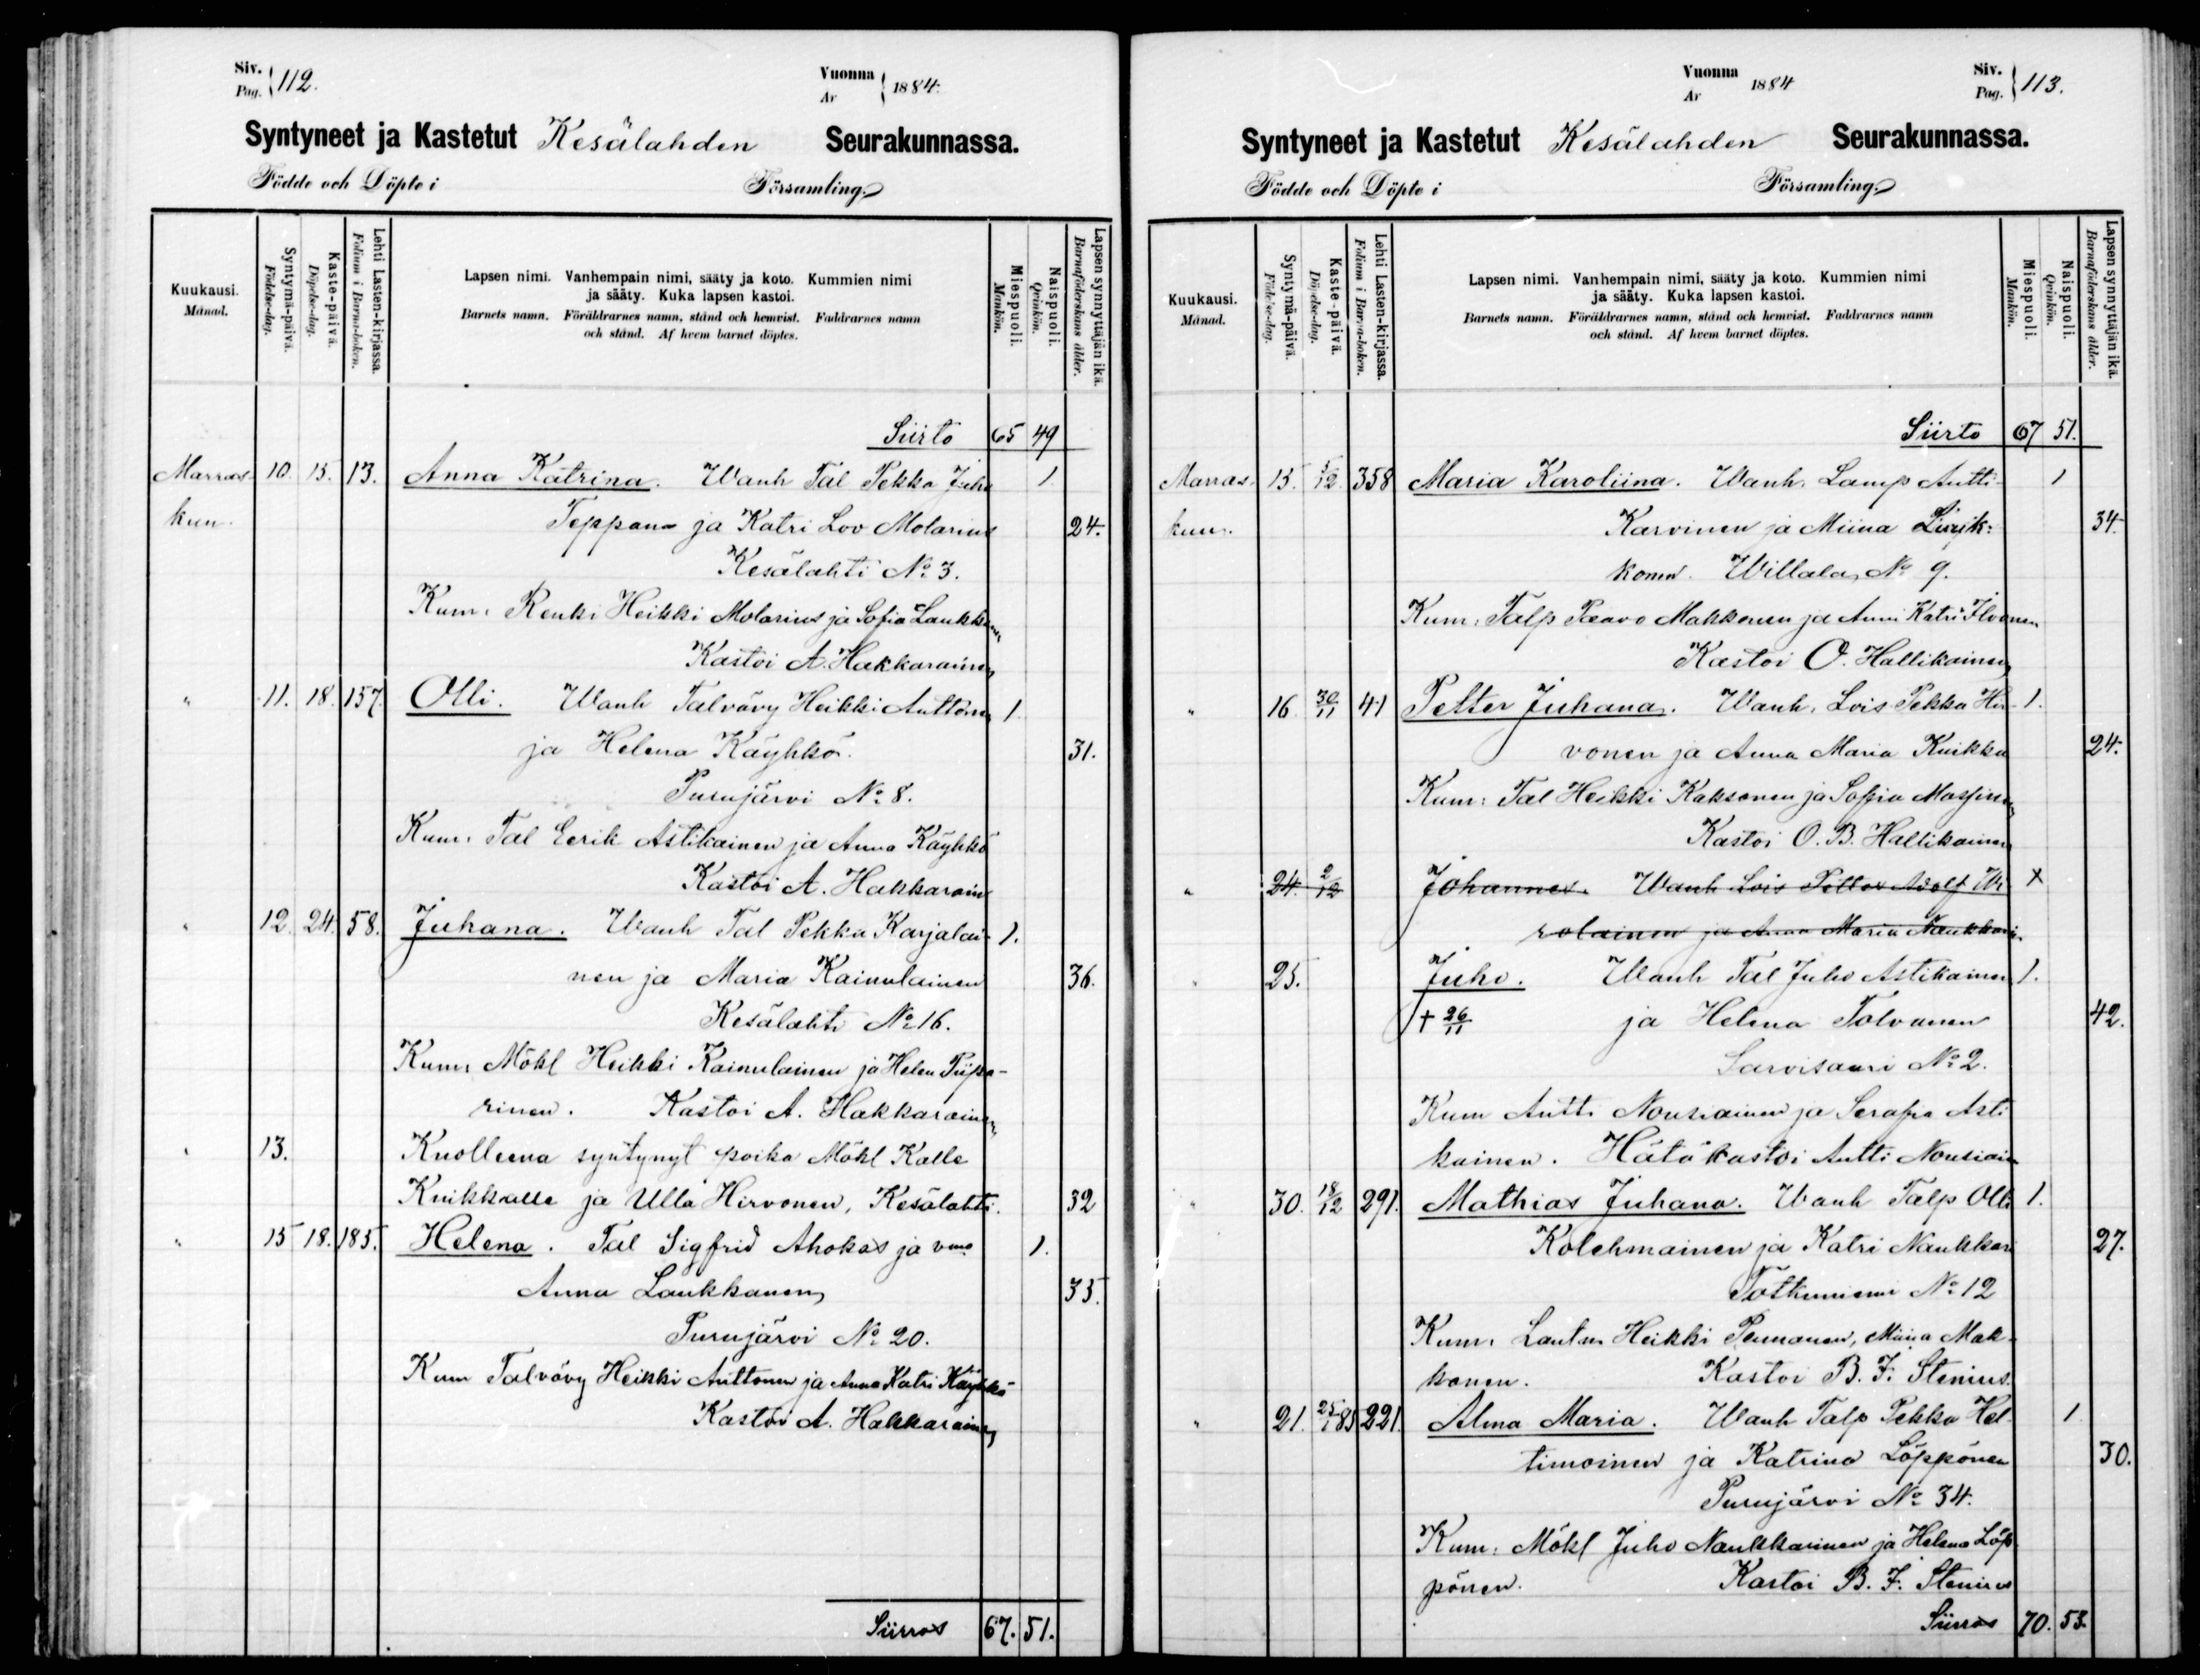 Siv.
Pag. 112.
Vuonna
Ar 1884.
Syntyneet ja Kastetut Kesälahden Seurakunnassa.
Födde och Döpte i Församling.
Kuukausi.
Månad.
Syntymä-päivä.
Födelse-dag.
Kaste-päivä.
Döpelse-dag.
Lehti Lasten-kirjassa.
Folium i Barna-boken.
Lapsen nimi. Vanhempain nimi, sääty ja koto. Kummien nimi
ja sääty. Kuka lapsen kastoi.
Barnets namn. Föräldrarnes namn, stånd och hemvist. Faddrarnes namn
och stånd. Af hvem barnet döptes.
Miespuoli.
Mankön.
Naispuoli.
Qvinkön.
Lapsen synnyttäjän ikä.
Barnaföderskans ålder.
Siirto 65 49
Marras- 10. 15. 13. Anna Katrina. Wanh Tal Pekka Juho 1.
kun. Teppana ja Katri Lov Molarius 24.
Kesälahti No 3.
Kum. Renki Heikki Molarius ja Sofia Laukkanen
Kastoi A. Hakkarainen
" 11. 18. 157. Olli. Wanh Talvävy Heikki Auttonen 1.
ja Helena Käyhkö. 31.
Purujärvi No 8.
Kum. Tal Eerik Astikainen ja Anna Käyhkö
Kastoi A. Hakkarain
" 12. 24. 58. Juhana. Wanh Tal Pekka Karjalai- 1.
nen ja Maria Kainulainen 36.
Kesälahti No 16.
Kum. Mökl Heikki Kainulainen ja Helen Piipa-
rinen. Kastoi A. Hakkarainen
" 13. Kuolleena syntynyt poika Mökl Kalle
Kuikkalle ja Ulla Hirvonen, Kesälahti. 32
" 15 18. 185. Helena. Tal Sigfrid Ahokas ja vmo 1.
Anna Laukkanen 35.
Purujärvi No 20.
Kum Talvävy Heikki Auttonen ja Anna Katri Käyhkö
Kastoi A. Hakkarainen
Siirros 67. 51.
Vuonna
Ar 1884
Siv.
Pag. 113.
Syntyneet ja Kastetut Kesälahden Seurakunnassa.
Födde och Döpte i Församling.
Kuukausi.
Månad.
Syntymä-päivä.
Födelse-dag.
Kaste-päivä.
Döpelse-dag.
Lehti Lasten-kirjassa.
Folium i Barna-boken.
Lapsen nimi. Vanhempain nimi, sääty ja koto. Kummien nimi
ja sääty. Kuka lapsen kastoi.
Barnets namn. Föräldrarnes namn, stånd och hemvist. Faddrarnes namn
och stånd. Af hvem barnet döptes.
Miespuoli.
Mankön.
Naispuoli.
Qvinkön.
Lapsen synnyttäjän ikä.
Barnaföderskans ålder.
Siirto 67 51.
Marras- 15. 5/12 358 Maria Karoliina. Wanh. Lamp Antti 1
kun. Karvinen ja Miina 34.
konen. Willala No 9.
Kum: Talp Paavo Makkonen ja Anni Katri Ilvonen
Kastoi O. Hallikainen
" 16. 30/11 41 Petter Juhana. Wanh. Lois Pekka Hir- 1.
vonen ja Anna Maria Kuikka 24.
Kum: Tal Heikki Kaksonen ja Sofia
Kastoi O. B. Hallikainen
" 24. 2/12 Johannes. Wanh Lois Petter Adolf Wi- x
rolainen ja Anna Maria Naukkari
" 25. Juho. Wanh Tal Juho Astikainen 1.
+ 26/11 ja Helena Tolvanen 42.
Sarvisaari No 2.
Kum Antti Nousiainen ja Serafia Asti
kainen. Hätäkastoi Antti Nousiain
" 30. 18/12 291. Mathias Juhana. Wanh Talp Olli 1.
Kolehmainen ja Katri Naukkari 27.
Totkunniemi No 12
Kum. Lautm Heikki Pennanen, Miina Mak-
konen. Kastoi B. F. Stenius.
" 21. 25/1 85 221. Alma Maria. Wanh Talp Pekka Hel- 1
timoinen ja Katrina Löppönen 30.
Purujärvi No 34.
Kum: Mökl Juho Naukkarinen ja Helena Löp
pönen. Kastoi B. F. Stenius
Siirros 70. 53.